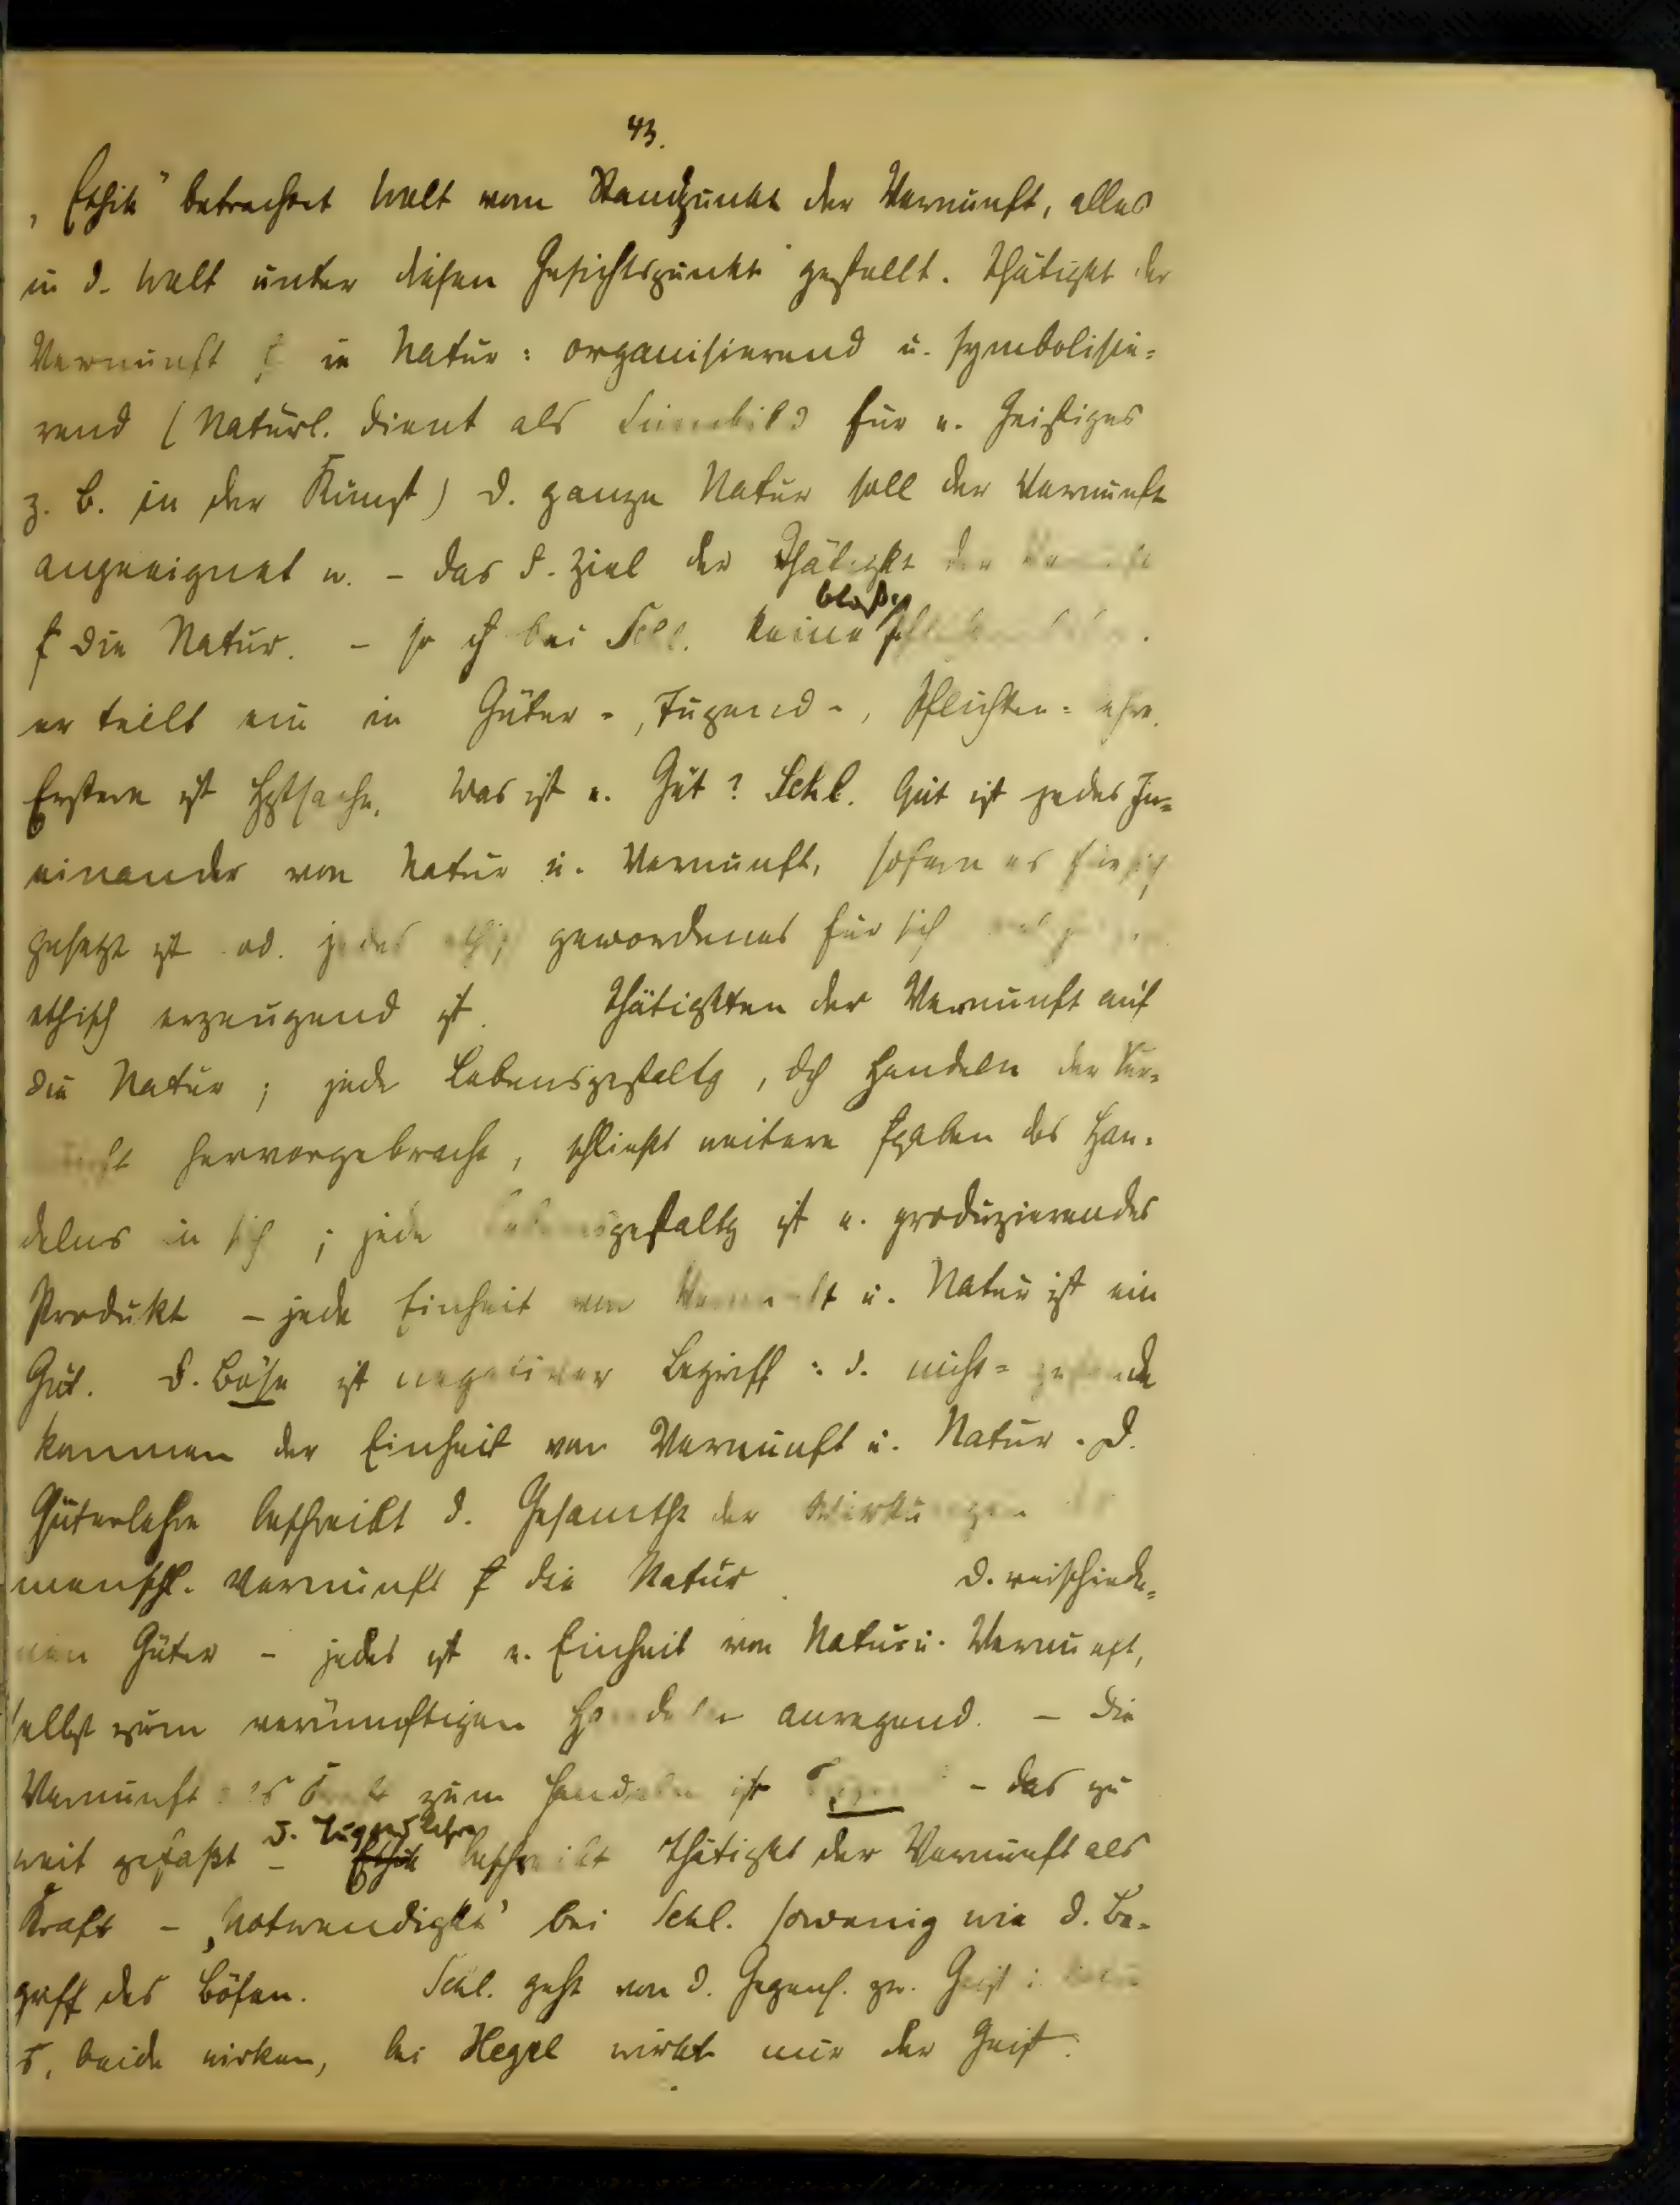 43.
„Ethik" betrachtet Welt vom Standpunkt der Vernunft, alles
in d. Welt unter diesen Gesichtspunkt gestellt. Thätigkt der
Vernunft f in Natur: organisierend u. symbolisie-
rend (Natürl. dient als Sinnbild für e. Geistiges
z. B. in der Kunst) d. ganze Natur soll der Vernunft
angeeignet w. – das d. Ziel der Thätigkt der Vernunft
f die Natur. – so ist bei Schl. keine bloße
er teilt ein in Güter-, Tugend-, Pflichten-lehre.
Erstere ist Hptsache. Was ist e. Gut? Schl. Gut ist jedes In-
einander von Natur u. Vernunft, sofern es für sich
gesetzt ist od. jedes ethisch gewordenes für sich
ethisch erzeugend ist. Thätigkten der Vernunft auf
die Natur; jede Lebensgestaltg, dch Handeln der Ver-
nunft hervorgebracht, schließt weitere fgaben des Han-
delns in sich; jede Lebensgestaltg ist e. produzierendes
Produkt – jede Einheit von Vernunft u. Natur ist ein
Gut. D. Böse ist negativer Begriff: d. nicht-
kommen der Einheit von Vernunft u. Natur. D.
Güterlehre beschreibt d. Gesamtht der Wirkungen
menschl. Vernunft f die Natur. d. verschiede-
nen Güter – jedes ist e. Einheit von Natur u. Vernunft,
selbst zum vernünftigen Handeln anregend. – Die
Vernunft als Kraft zum Handeln ist Tugend – das zu
weit gefaßt – d. Tugendlehre Ethik beschreibt Thätigkt der Vernunft als
Kraft – ‚Notwendigkt' bei Schl. sowenig wie d. Be-
griff des Bösen. Schl. geht von d. Gegens. zw. Geist u. Natur
, beide wirken, bei Hegel wirkt nur der Geist.